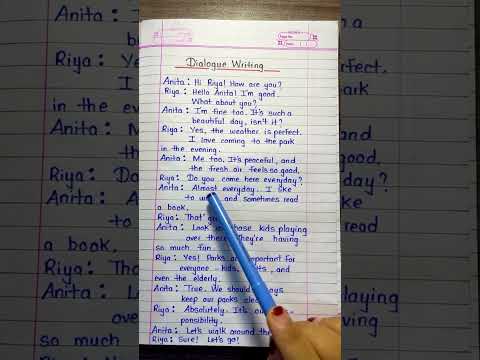 Dialogue Writing
Anita: Hi Riya! How are you?
Riya: Hello Anita! I'm good.
What about you?
Anita: I'm fine too. It's such a
beautiful day, isn't it?
Riya: Yes, the weather is perfect.
I love coming to the park
in the evening.
Anita: Me too. It's peaceful, and
the fresh air feels so good.
Riya: Do you come here everyday?
Anita: Almost everyday. I like
to and sometimes read
a book.
Riya: That
Anita: Look kids playing
over there. They're having
so much fun.
Riya: Yes! Parks important for
everyone - kids, and
even the elderly.
Anita: True. We should
keep our parks
Riya: Absolutely. It's
ponsibility.
Anita: Let's walk around the
Riya: Sure! Let's go!